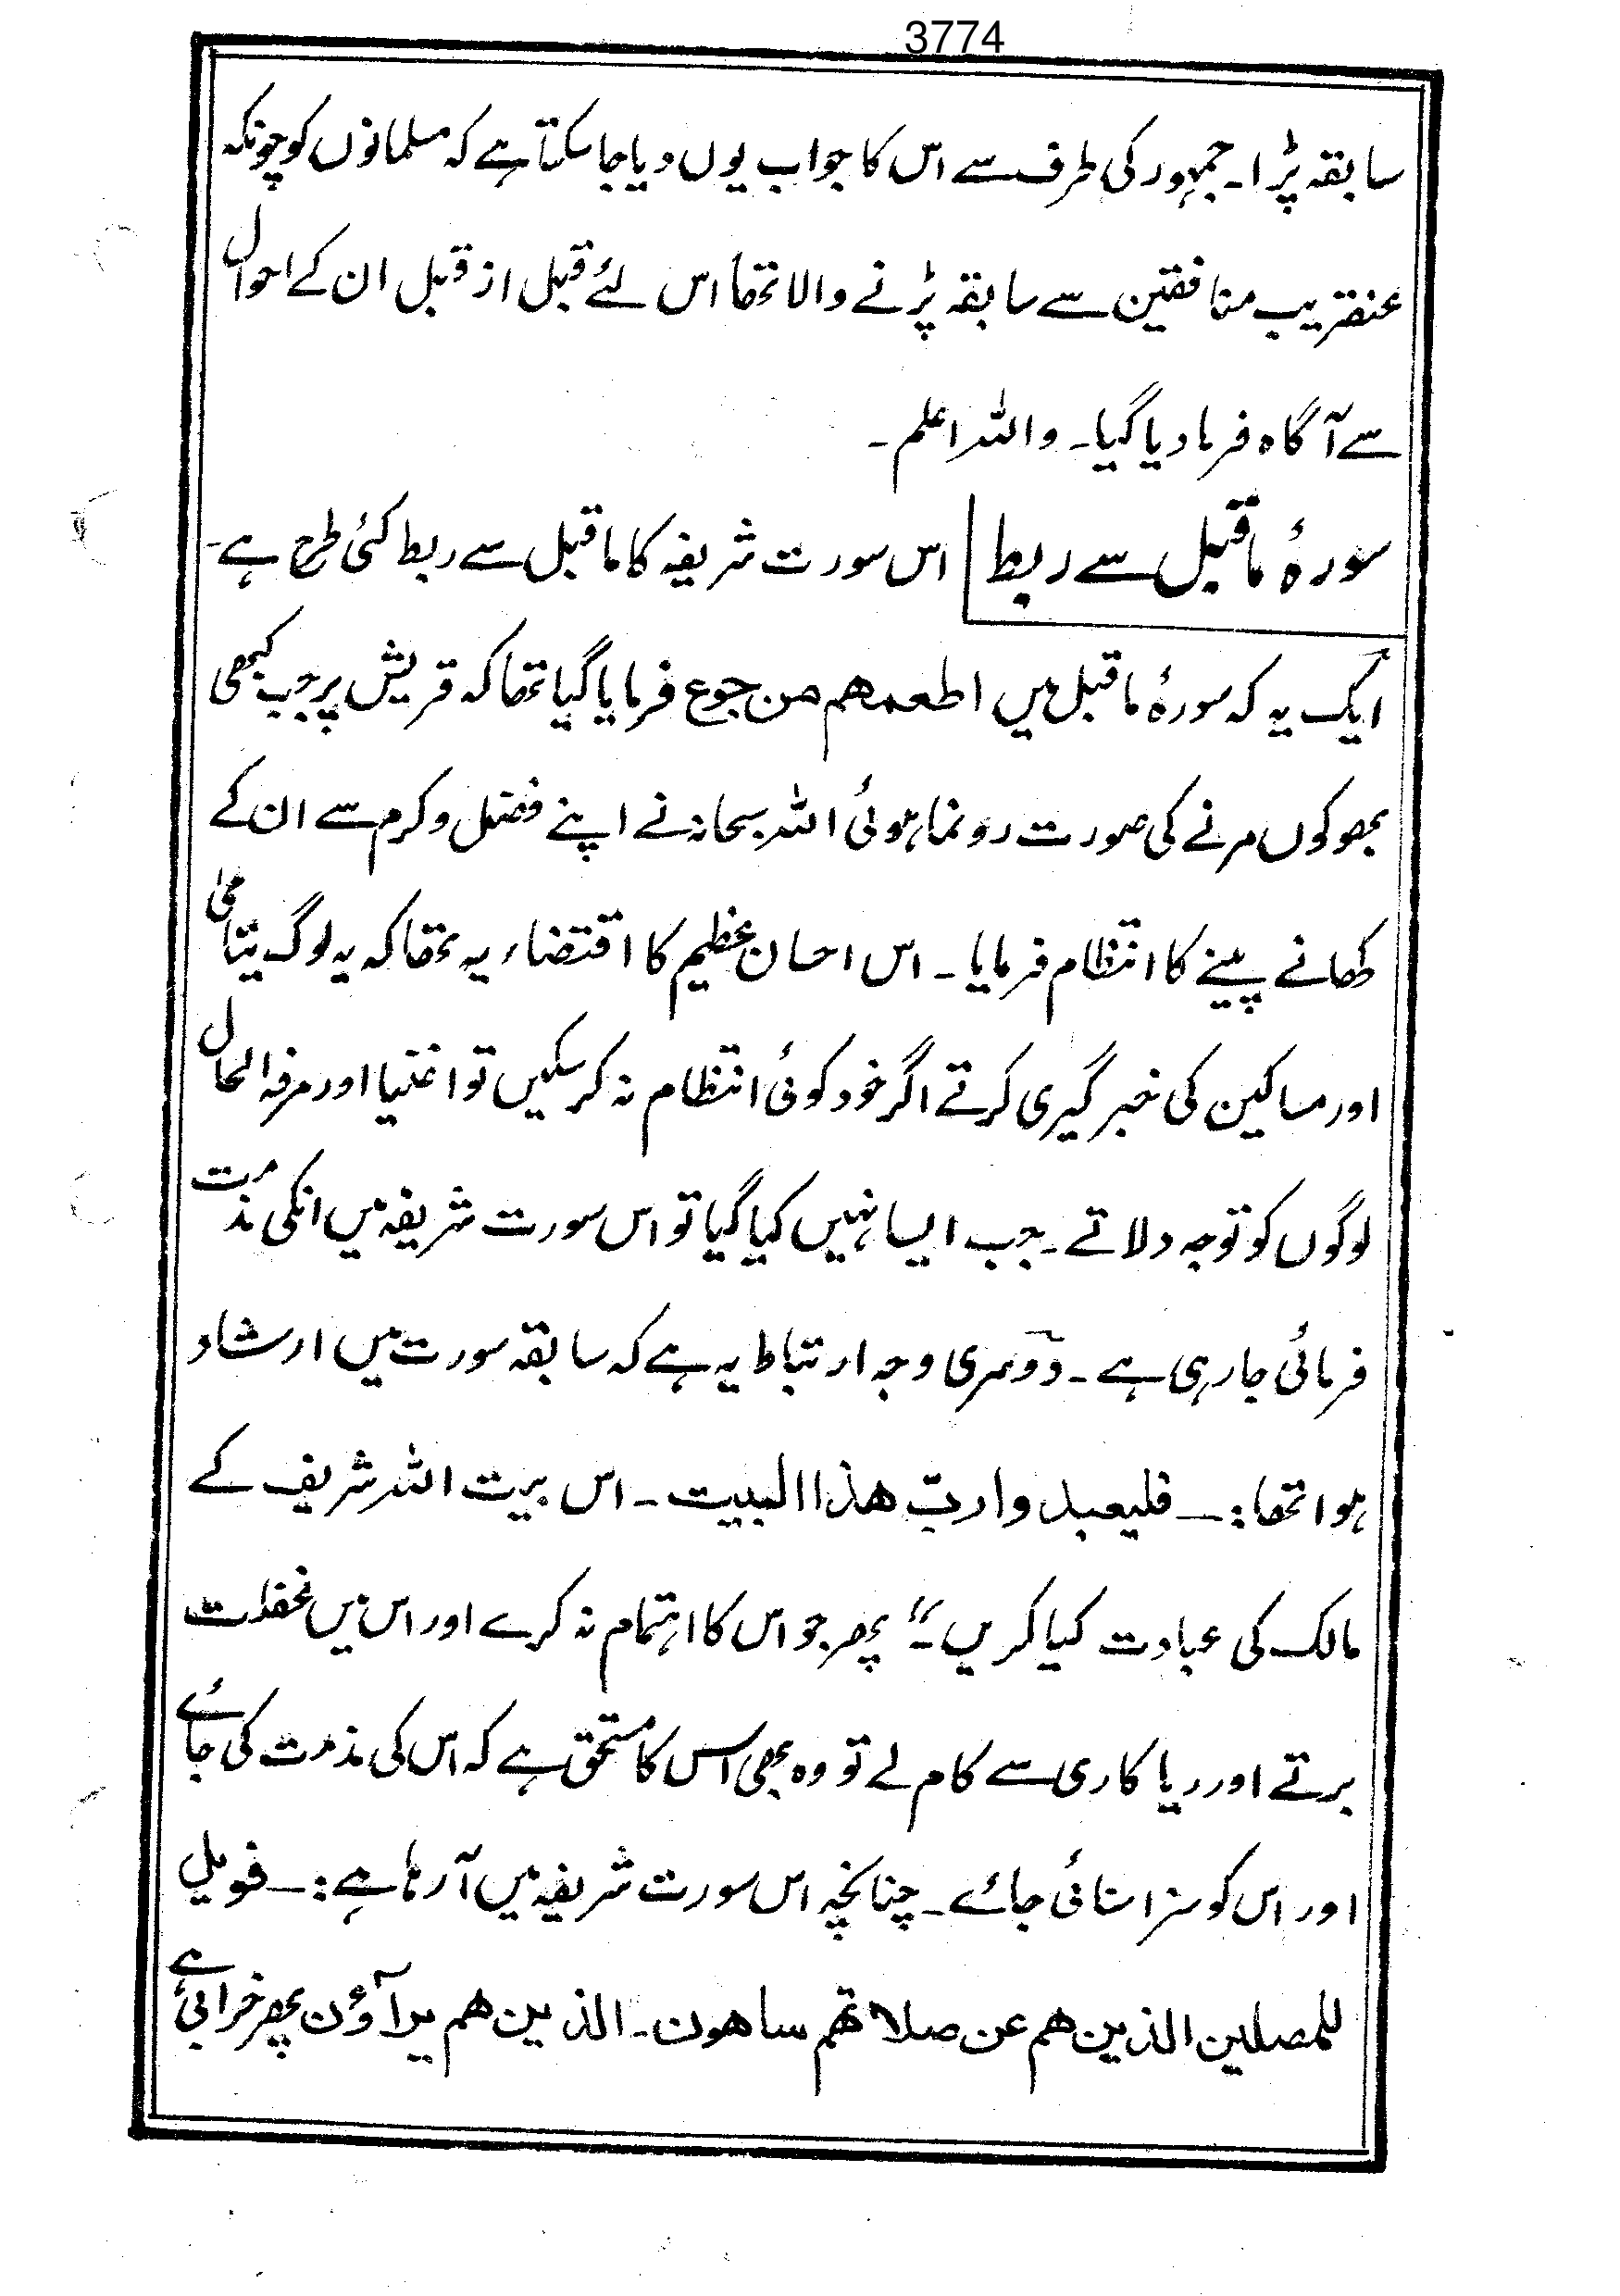 3774
سابقہ پڑا۔ جمہور کی طرف سے اس کا جواب یوں دیا جا سکتا ہے کہ مسلمانوں کو چونکہ
عنقریب منافقین سے سابقہ پڑنے والا تھا اس لئے قبل از قبل ان کے احوال
سے آگاہ فرما دیا گیا۔ واللہ اعلم۔
سورۂ ماقبل سے ربط اس سورت شریفہ کا ماقبل سے ربط کئی طرح ہے۔
ایک یہ کہ سورۂ ماقبل میں اطعمھم من جوع فرمایا گیا تھا کہ قریش پر جب کبھی
بھوکوں مرنے کی صورت رونما ہوئی اللہ سبحانہ نے اپنے فضل و کرم سے ان کے
کھانے پینے کا انتظام فرمایا۔ اس احسان عظیم کا اقتضاء یہ تھا کہ یہ لوگ یتامیٰ
اور مساکین کی خبر گیری کرتے اگر خود کوئی انتظام نہ کر سکیں تو اغنیا اور مرفہ الحال
لوگوں کو توجہ دلاتے۔ جب ایسا نہیں کیا گیا تو اس سورت شریفہ میں انکی مذمت
فرمائی جا رہی ہے۔ دوسری وجہ ارتباط یہ ہے کہ سابقہ سورت میں ارشاد
ہوا تھا:۔ فلیعبدوا ربّ ھذا البیت۔ اس بیت اللہ شریف کے
مالک کی عبادت کیا کریں۔" پھر جو اس کا اہتمام نہ کرے اور اس میں غفلت
برتے اور ریا کاری سے کام لے تو وہ بھی اس کا مستحق ہے کہ اس کی مذمت کی جائے
اور اس کو سزا سنائی جائے۔ چنانچہ اس سورت شریفہ میں آ رہا ہے:۔ فویل
للمصلین الذین ھم عن صلاتھم ساھون۔ الذین ھم یرآؤن پھر خرابی ہے